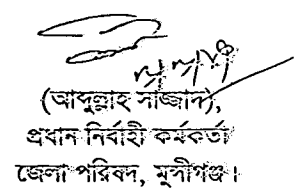 (আব্দুল্লাহ সাজ্জাদ),
প্রধান নির্বাহী কর্মকর্তা
জেলা পরিষদ, মুন্সীগঞ্জ।